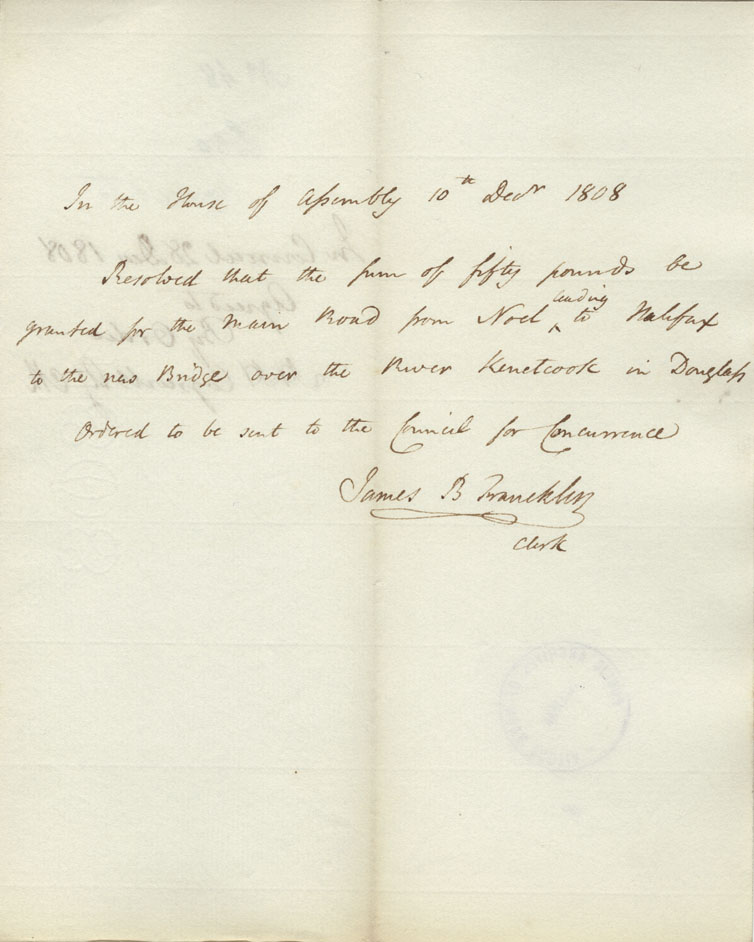 In the House of Assembly 10th Decr 1808
Resolved that the sum of fifty pounds be
granted for the Main Road from Noel leading to Halifax
to the new Bridge over the River Kenetcook in Douglass
Ordered to be sent to the Council for Concurrence
James B Francklin
Clerk